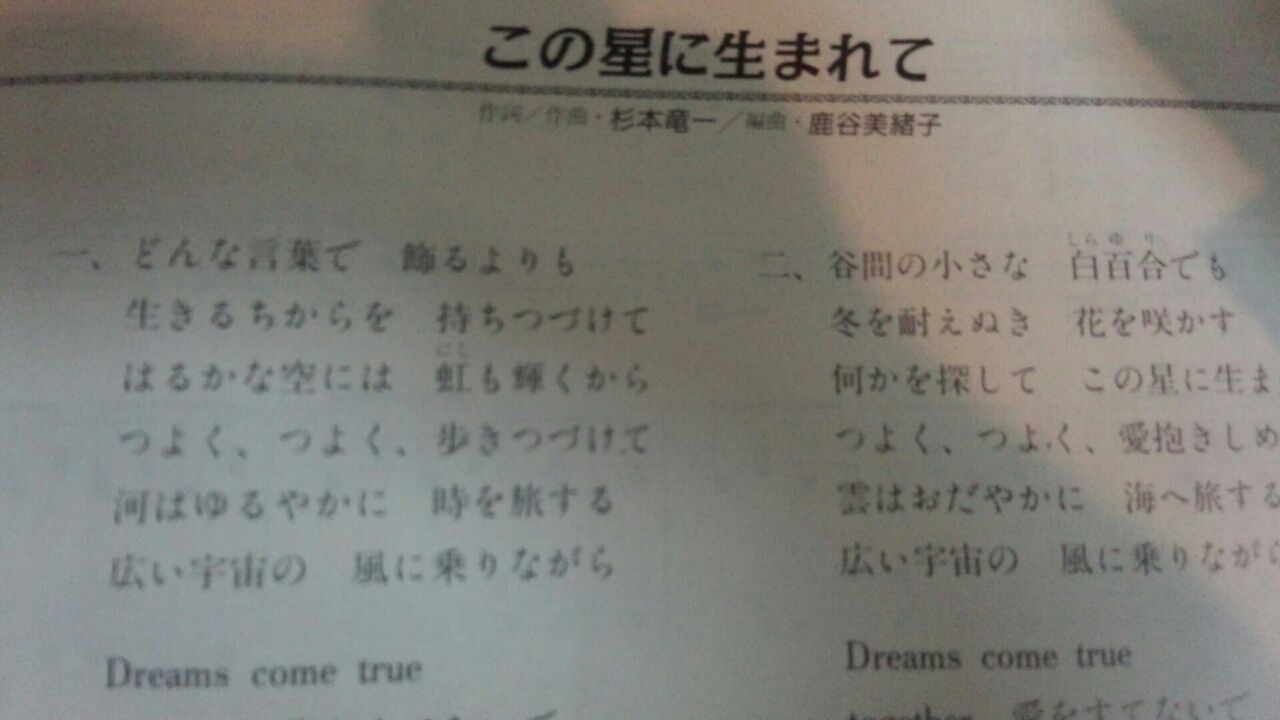 この星に生まれて
作詞／作曲・杉本竜一／編曲・鹿谷美緒子
一、どんな言葉で　飾るよりも
生きるちからを　持ちつづけて
にじ
はるかな空には　虹も輝くから
つよく、つよく、歩きつづけて
河はゆるやかに　時を旅する
広い宇宙の　風に乗りながら
Dreams come true
しらゆり
二、谷間の小さな　白百合でも
冬を耐えぬき　花を咲かす
何かを探して　この星に生ま
つよく、つよく、愛抱きしめ
雲はおだやかに　海へ旅する
広い宇宙の　風に乗りなが
Dreams come true
together　愛をすてないで